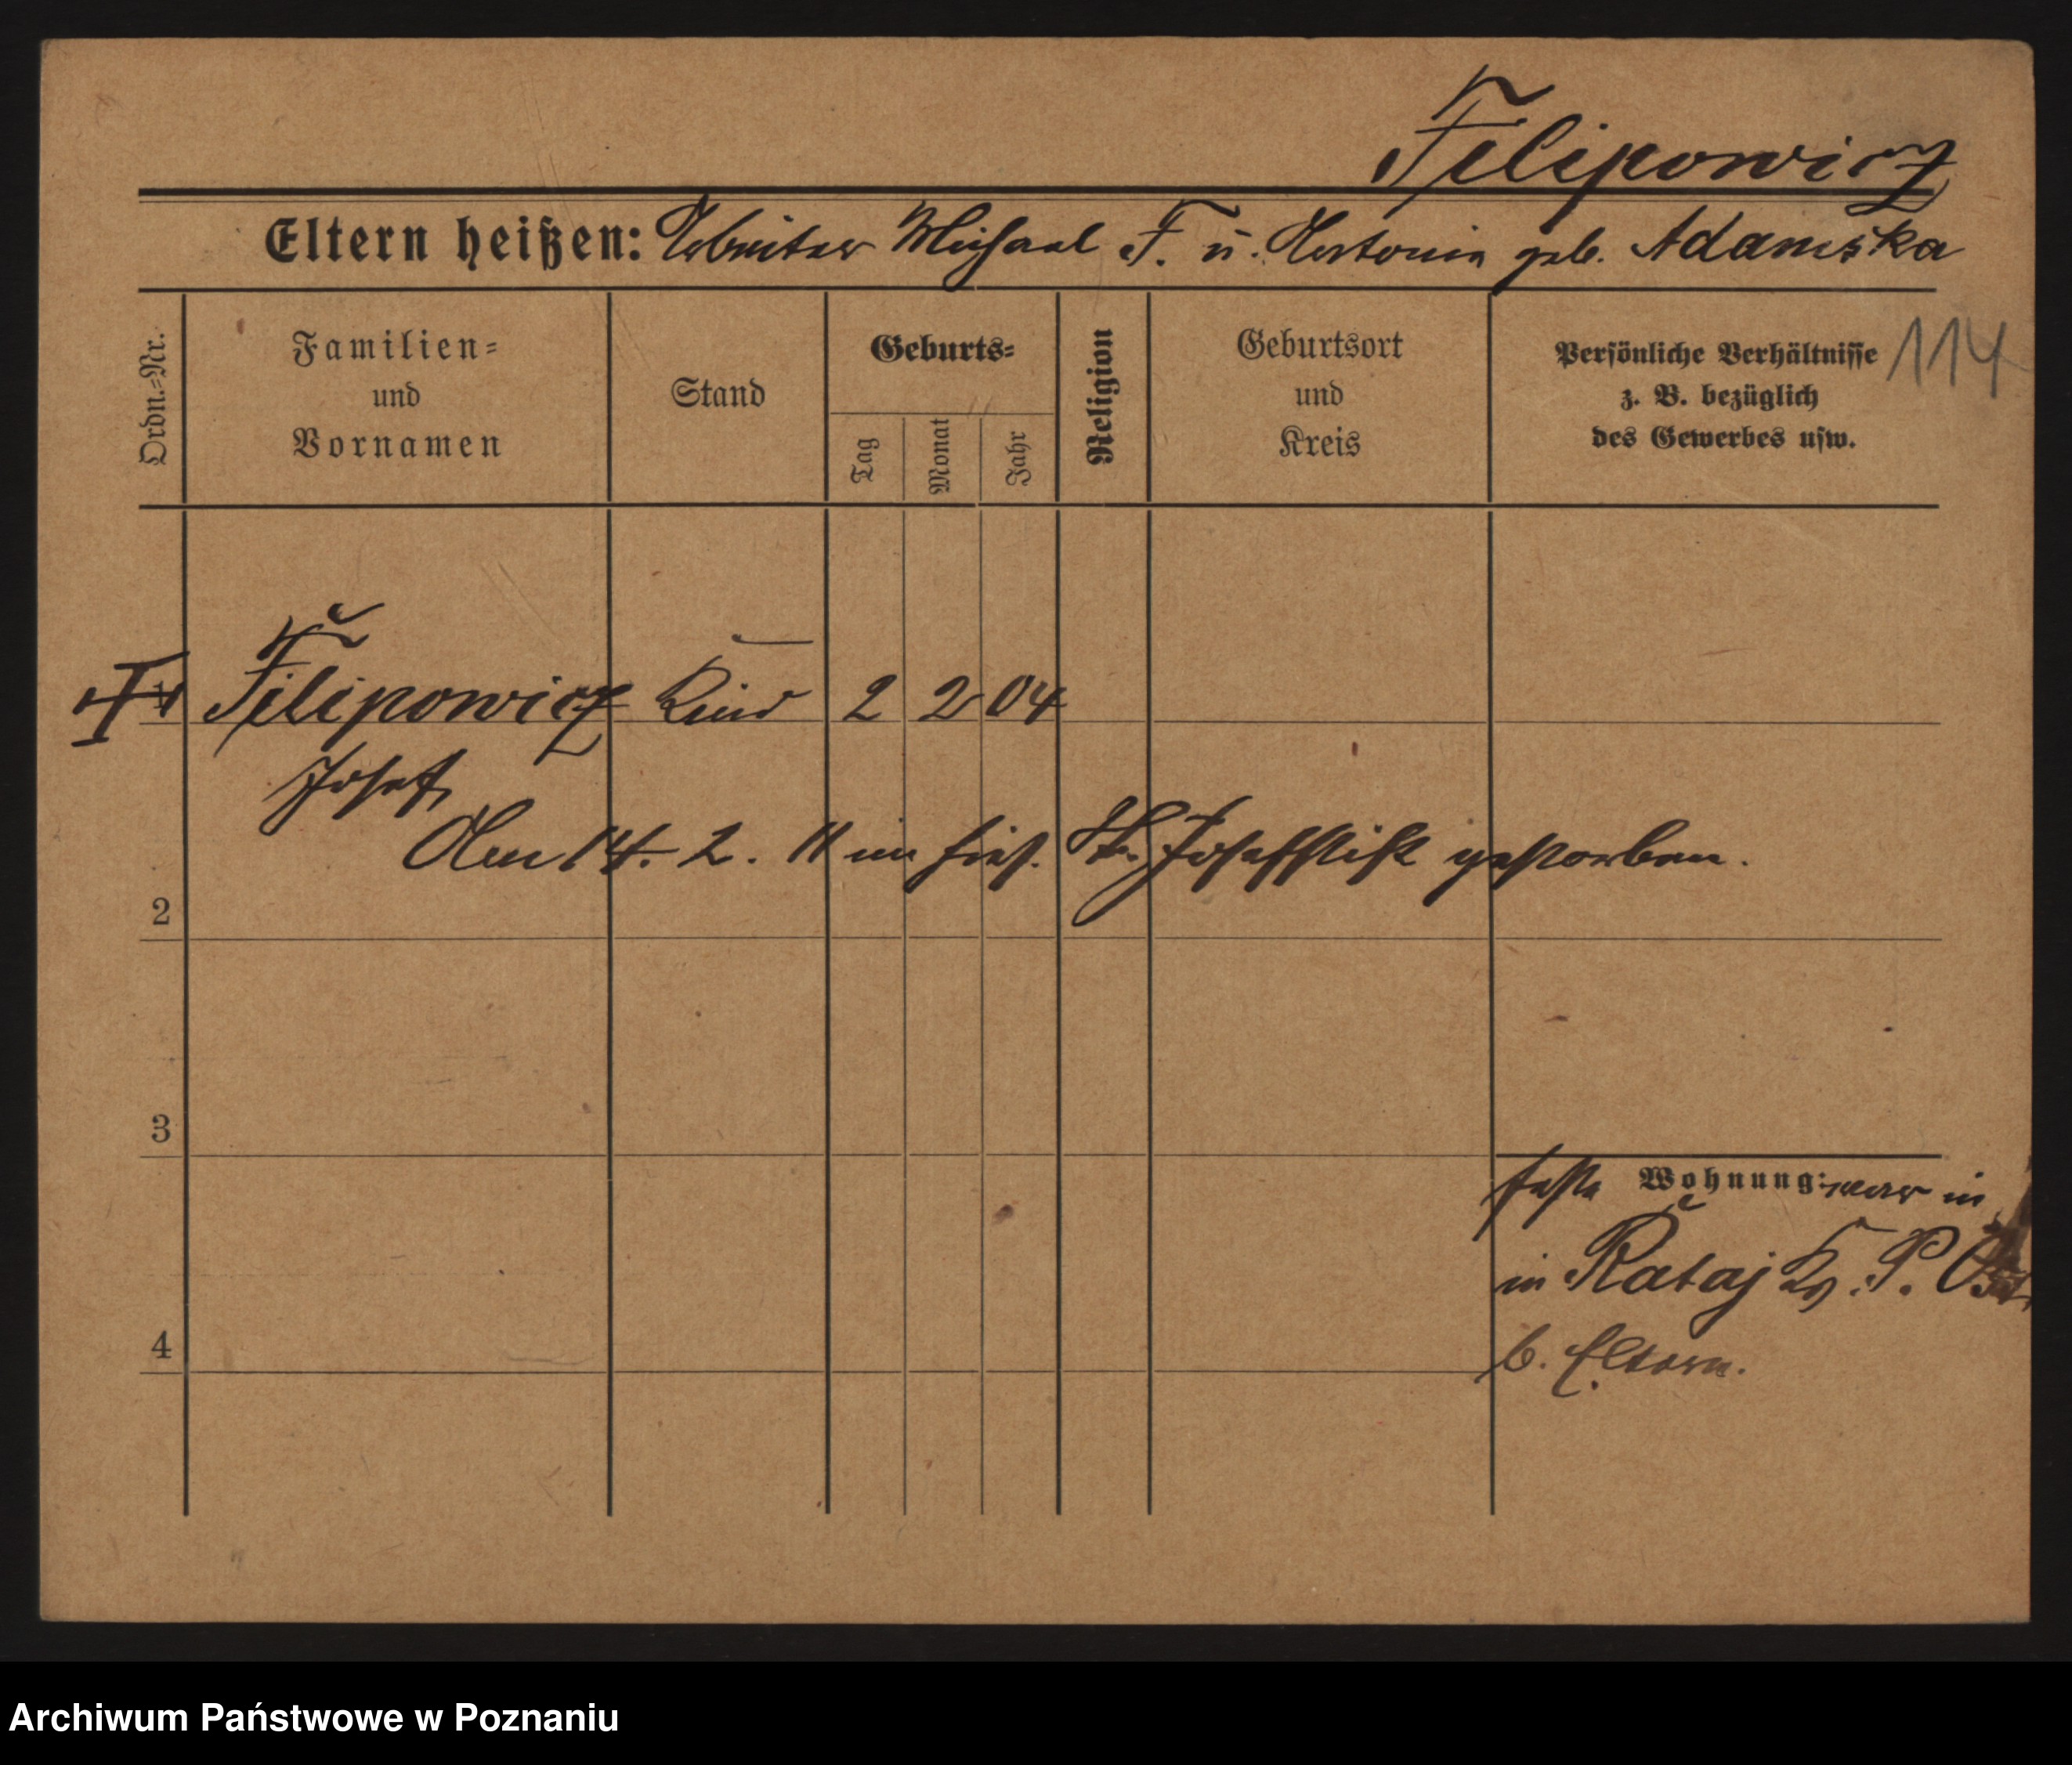 Filipowicz
Eltern heißen: Arbeiter Michael F. u. Antonia geb. Adamska
Ordn.-Nr.
Familien-
und
Vornamen
Stand
Geburts-
Tag
Monat
Jahr
Religion
Geburtsort
und
Kreis
Persönliche Verhältnisse
z. B. bezüglich
des Gewerbes usw.
114
1 Filipowicz Kind 2 2 04
Josef
Am 14. 2. 11 im hies. St. Josefstift gestorben.
2
3
feste Wohnung: war in
in Rataj Kr. P. Ost
4
b. Eltern.
Archiwum Państwowe w Poznaniu